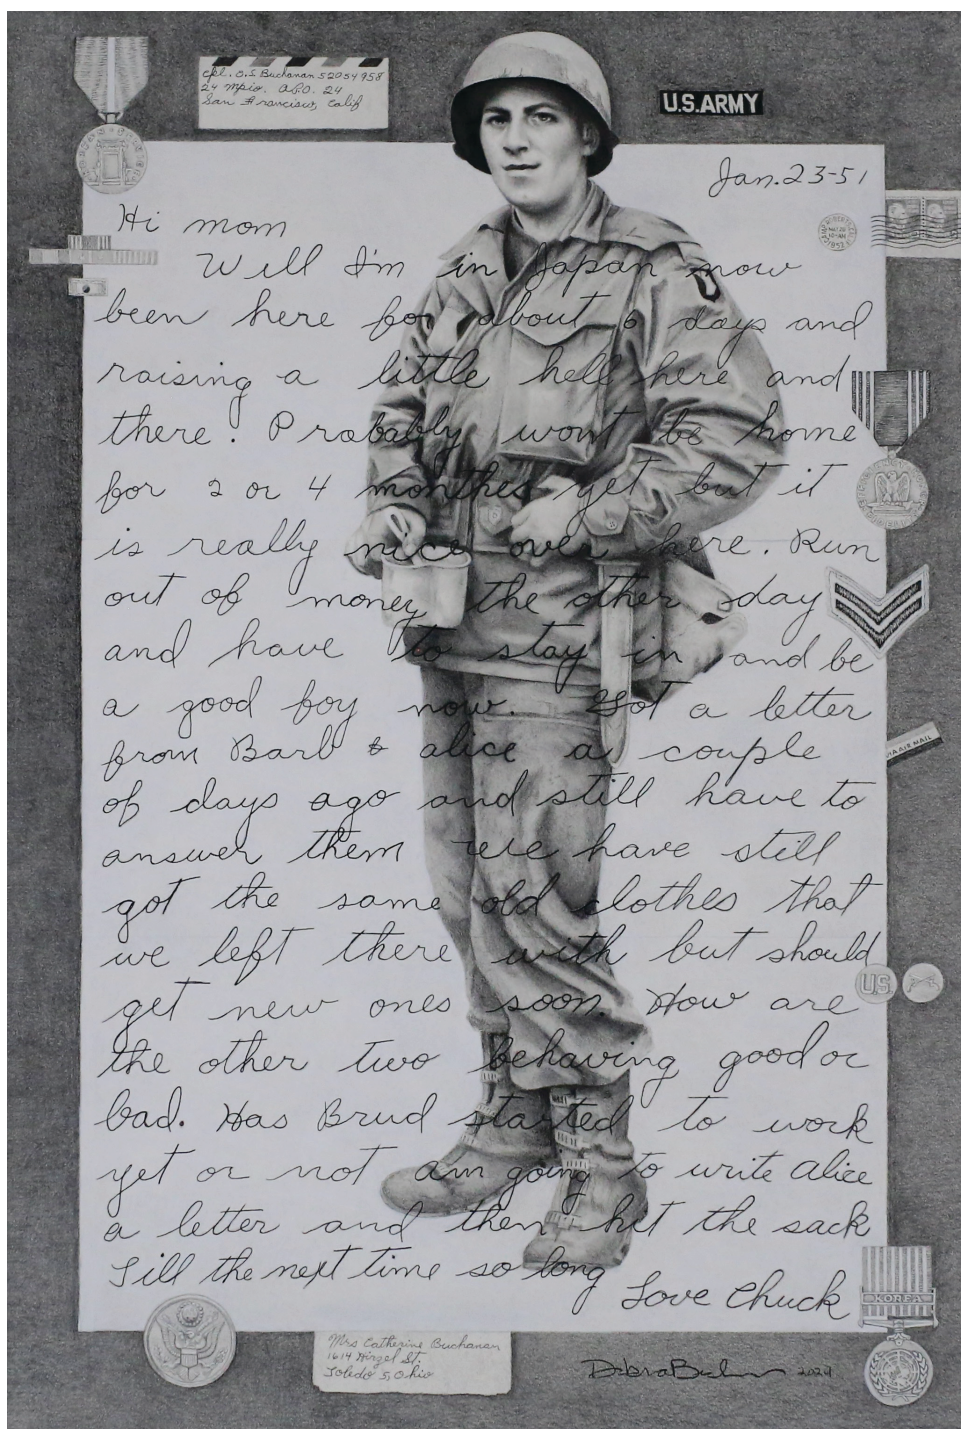 Cpl. O.S. Buchanan 52054958
24 Mpco. A.P.O. 24
San Francisco, Calif
U.S.ARMY
Jan. 23-51
Hi mom
Will I'm in Japan now
been here for about 6 days and
raising a little hell here and
there. Probably wont be home
for 2 or 4 monthes yet but it
is really nice over here. Run
out of money the other day
and have to stay in and be
a good boy now. Got a letter
from Barb & alice a couple
of days ago and still have to
answer them we have still
got the same old clothes that
we left there with but should
get new ones soon. How are
the other two behaving good or
bad. Has Brud started to work
yet or not am going to write alice
a letter and then hit the sack
Till the next time so long
Love Chuck
1952
VIA AIR MAIL
U.S
KOREA
Mrs Catherine Buchanan
1614 Hirzel St.
Toledo 5, Ohio
2024